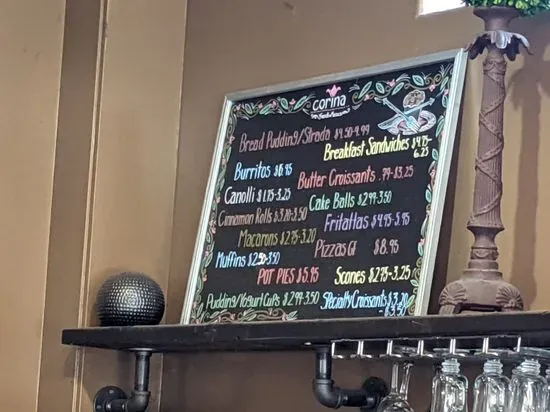 corina
Bread Pudding/Strada $4.50-4.99
Breakfast Sandwiches $4.75-
6.25
Burritos $6.95
Butter Croissants .99-$3.25
Canolli $1.75-3.25
Cake Balls $2.99-3.50
Cinnamon Rolls $3.20-3.50
Fritattas $4.95-5.95
Macarons $2.75-3.20
Pizzas GF $8.95
Muffins $2.50-3.50
POT PIES $5.95
Scones $2.75-3.25
Pudding/Yogurt Cups $2.99-3.50
Specialty Croissants $3.20